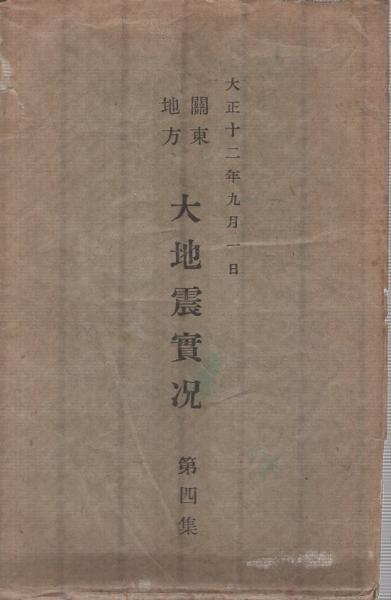 大正十二年九月一日
關東
地方
大地震實況
第四集